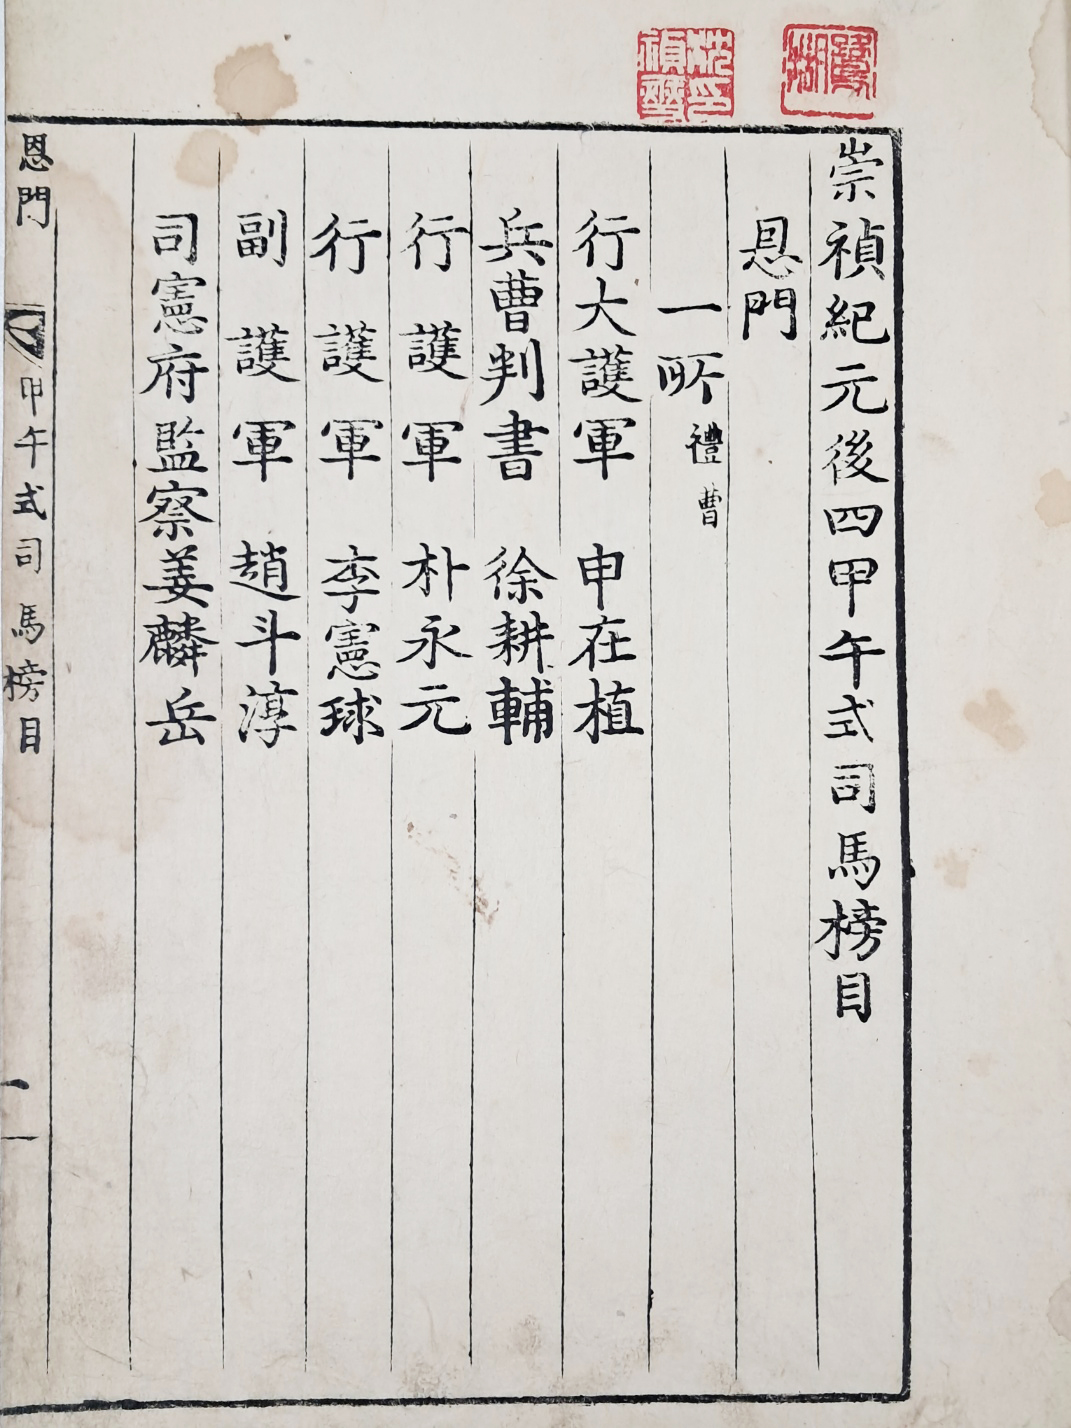 崇禎紀元後四甲午式司馬榜目
恩門
一所 禮曹
行大護軍 申在植
兵曹判書 徐耕輔
行護軍 朴永元
行護軍 李憲球
副護軍 趙斗淳
司憲府監察姜麟岳
恩門 甲午式司馬榜目 一